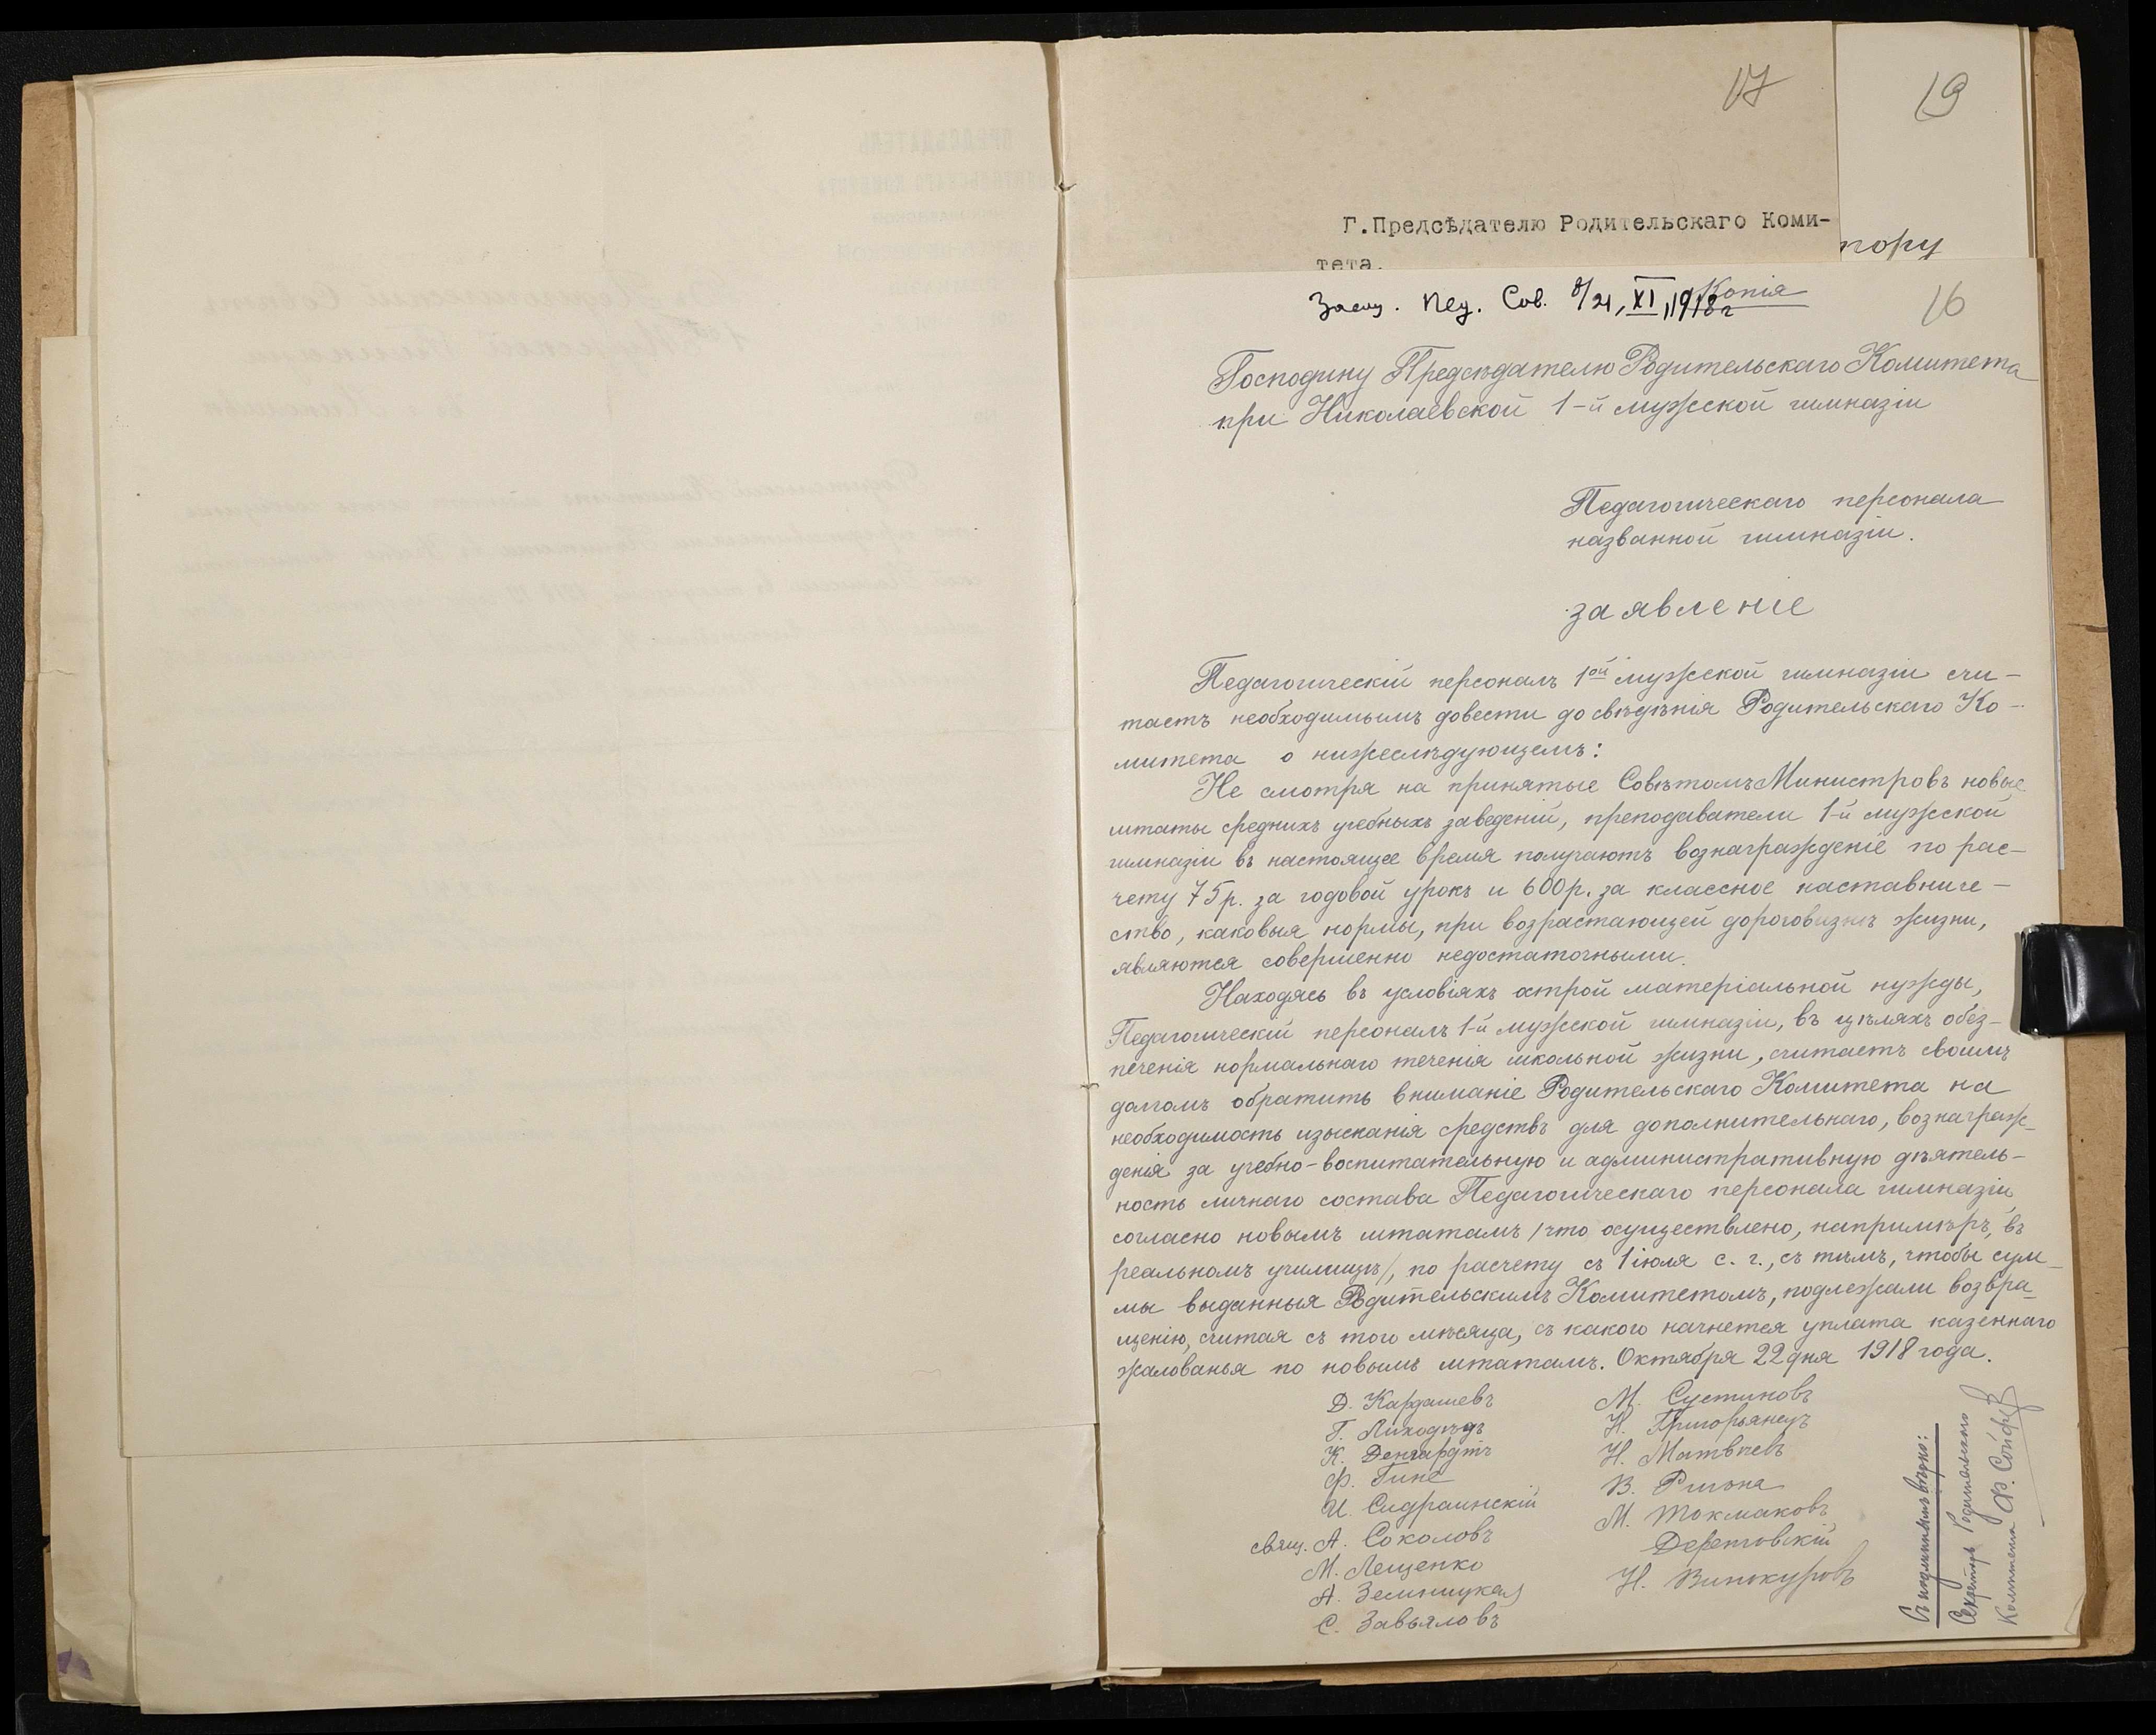 17
19
Г.Предсѣдателю Родительскаго Коми-
тета.
тору
Засѣд. Пед. Сов. 8/21, XI, 1918 г
Копія
16
Господину Предсѣдателю Родительскаго Комитета
при Николаевской 1-й мужской гимназіи
Педагогическаго персонала
названной гимназіи.
заявленіе
Педагогическій персоналъ 1ой мужской гимназіи счи-
таетъ необходимымъ довести до свѣдѣнія Родительскаго Ко-
митета о нижеслѣдующемъ:
Не смотря на принятые Совѣтомъ Министровъ новые
штаты среднихъ учебныхъ заведеній, преподаватели 1-й мужской
гимназіи въ настоящее время получаютъ вознагражденіе по рас-
чету 75 р. за годовой урокъ и 600 р. за классное наставниче-
ство, каковыя нормы, при возрастающей дороговизнѣ жизни,
являются совершенно недостаточными.
Находясь въ условіяхъ острой матеріальной нужды,
Педагогическій персоналъ 1-й мужской гимназіи, въ цѣляхъ обез-
печенія нормальнаго теченія школьной жизни, считаетъ своимъ
долгомъ обратить вниманіе Родительскаго Комитета на
необходимость изысканія средствъ для дополнительнаго, вознаграж-
денія за учебно-воспитательную и административную дѣятель-
ность личнаго состава Педагогическаго персонала гимназіи,
согласно новымъ штатамъ /что осуществлено, напримѣръ, въ
реальномъ училищѣ/, по расчету съ 1 іюля с. г., съ тѣмъ, чтобы сум-
мы выданныя Родительскимъ Комитетомъ, подлежали возвра-
щенію, считая съ того мѣсяца, съ какого начнется уплата казеннаго
жалованья по новымъ штатамъ. Октября 22 дня 1918 года.
Д. Кардашевъ
Г. Лиходѣдъ
К. Денгардтъ
Ф. Гине
И. Сидраинскій
свящ. А. Соколовъ
М. Лещенко
А. Земницкая
С. Завьяловъ
М. Сустиновъ
Н. Григорьянцъ
Н. Матвѣевъ
В. Ригона
М. Токмаковъ
Деретовскій
Н. Винокуровъ
Съ подлиннымъ вѣрно:
Секретарь Родительскаго
Комитета Ф.